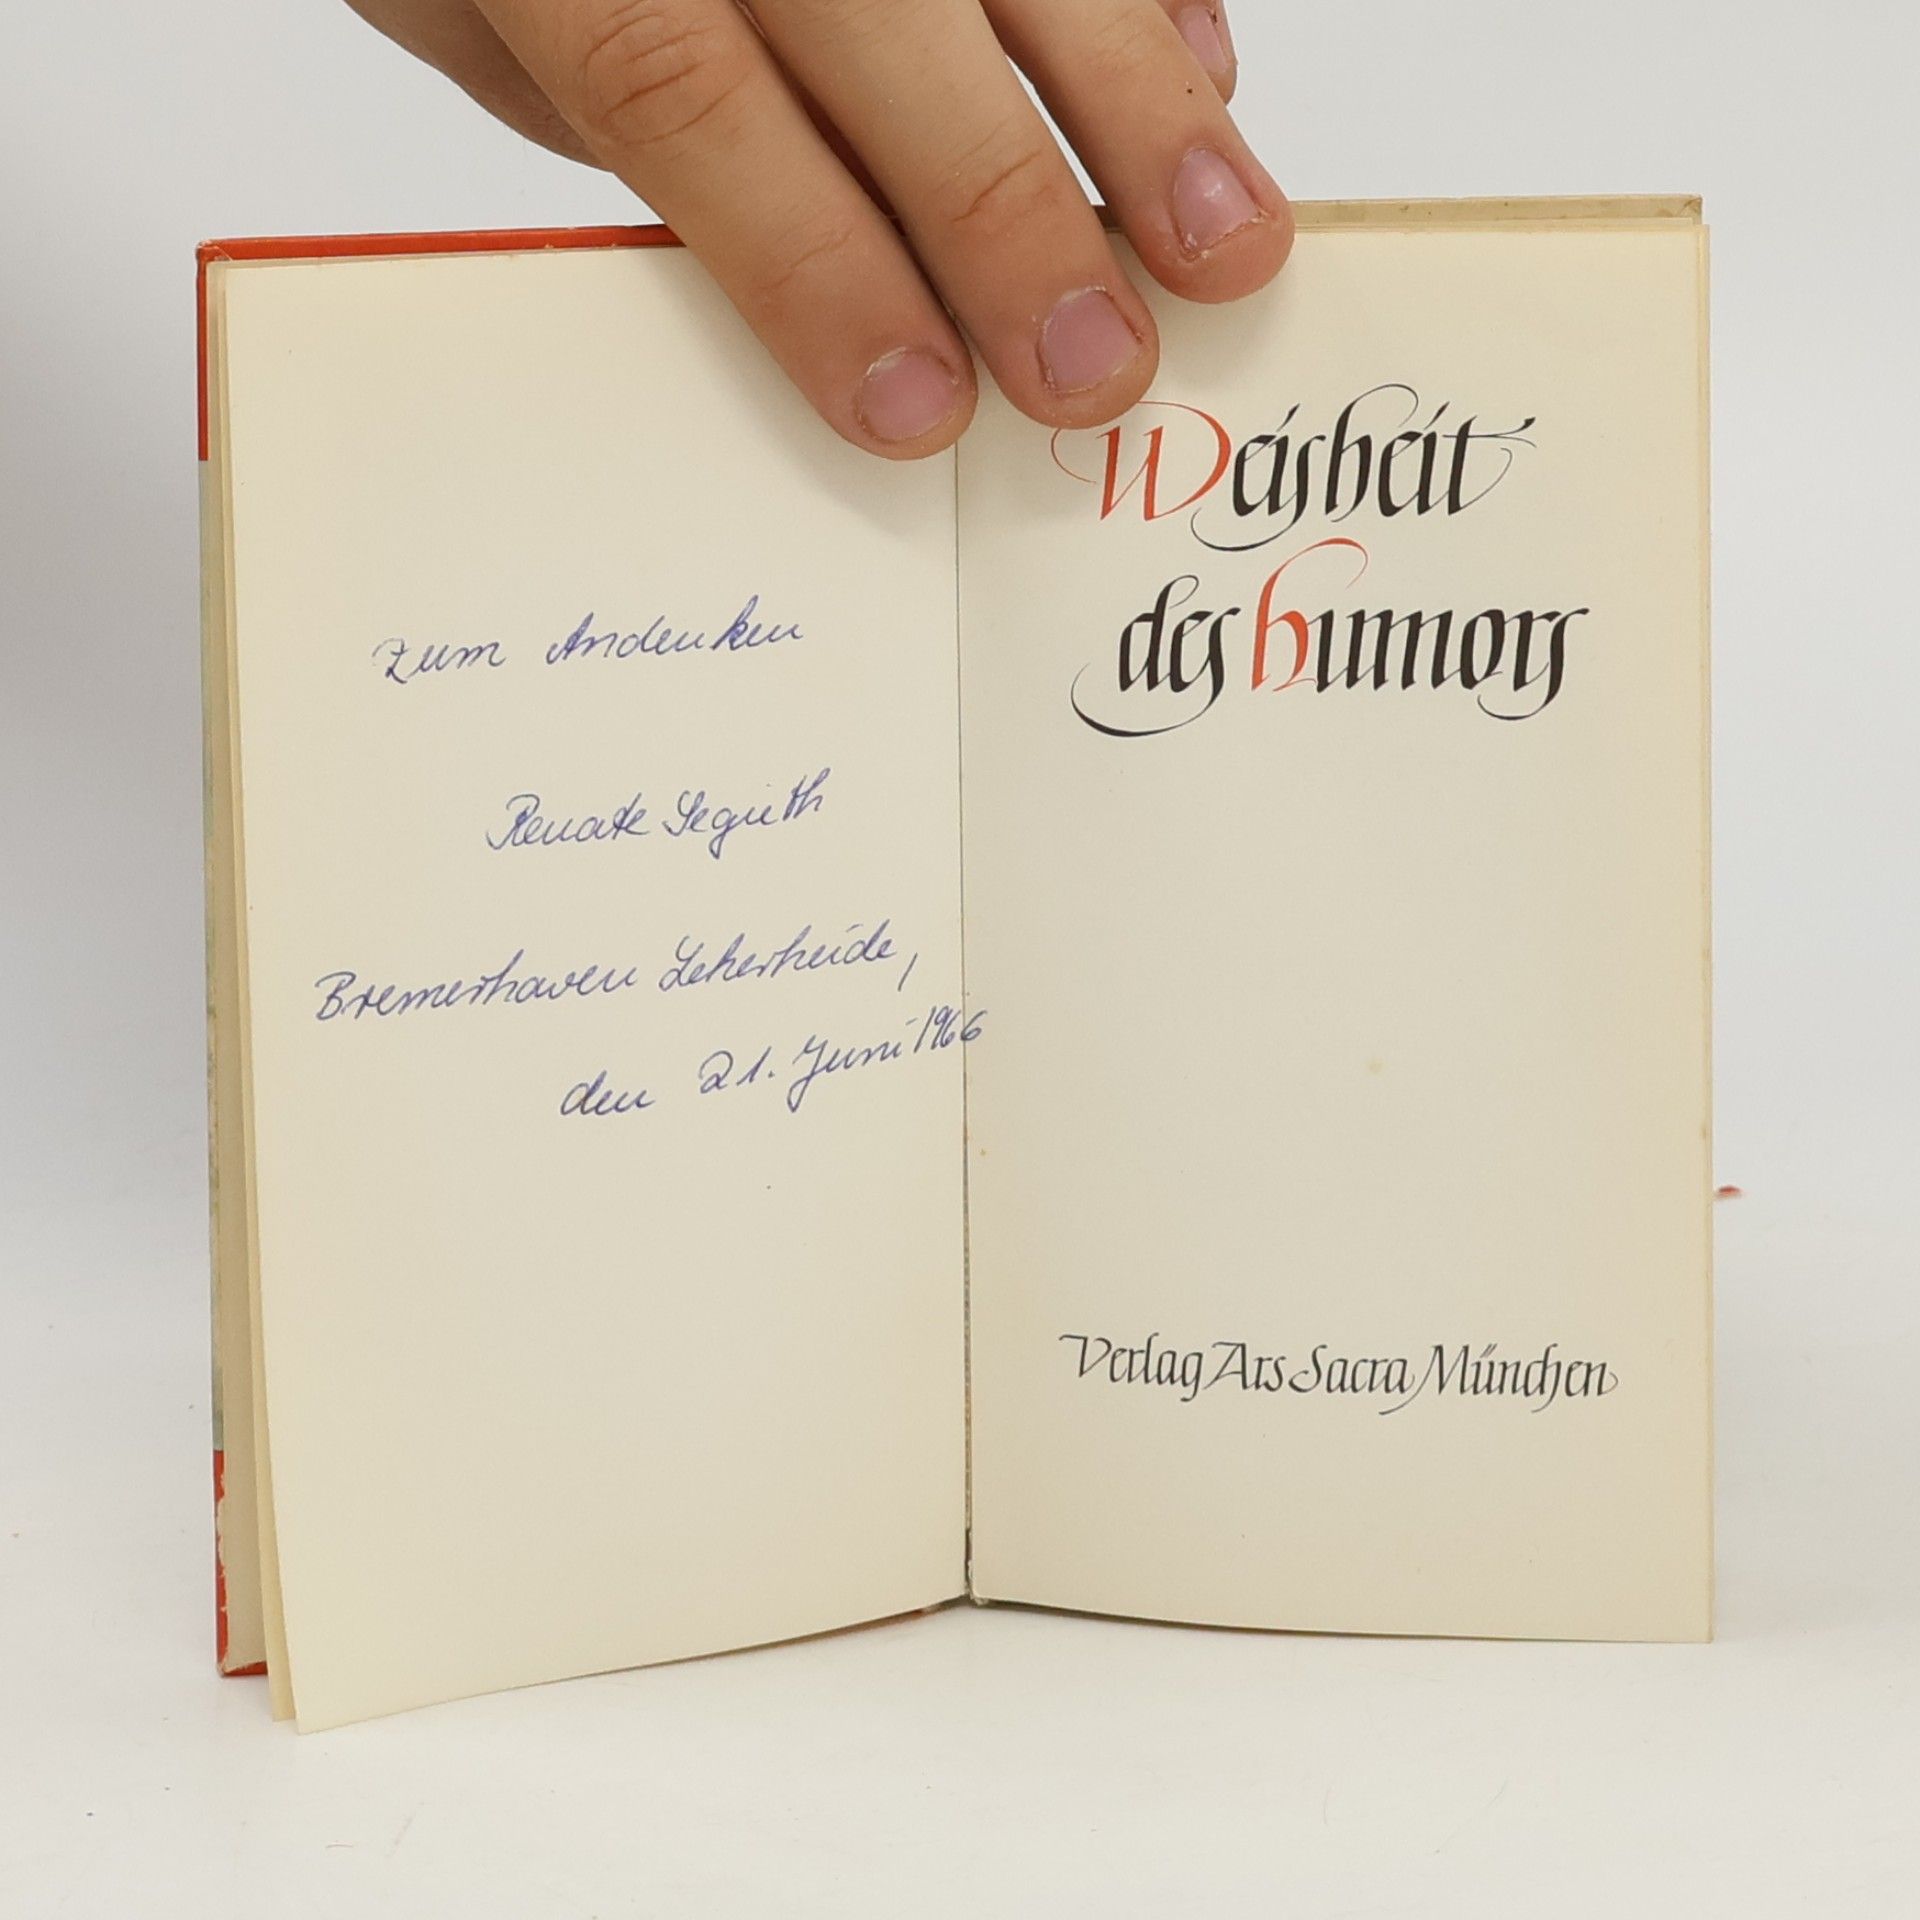 zum Andenken
Renate
Bremerhaven Leherheide,
den 21. Juni 1966
Weisheit
des humors
Verlag Ars Sacra München